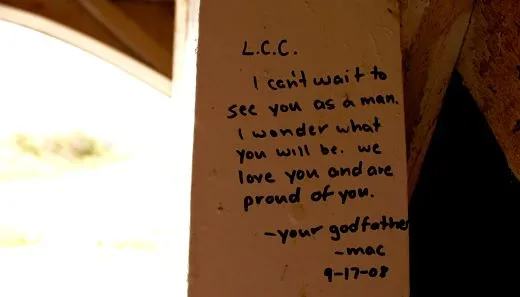 L.C.C.
I can't wait to
see you as a man.
I wonder what
you will be. we
love you and are
proud of you.
-your godfather
-mac
9-17-08